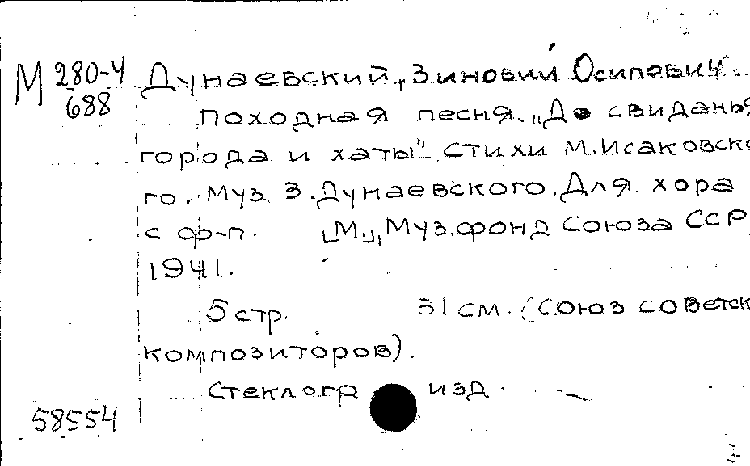 М 280-4 Дунаевский, Зиновий Осипович.
688
Походная песня. „До свиданья
города и хаты". Стихи М. Исаковско
го. Муз. З. Дунаевского. Для хора
с ф-п. [М.], Муз. фонд Союза ССР
1941.
5 стр. 31 см. (Союз советск
композиторов).
Стеклогр изд
58554